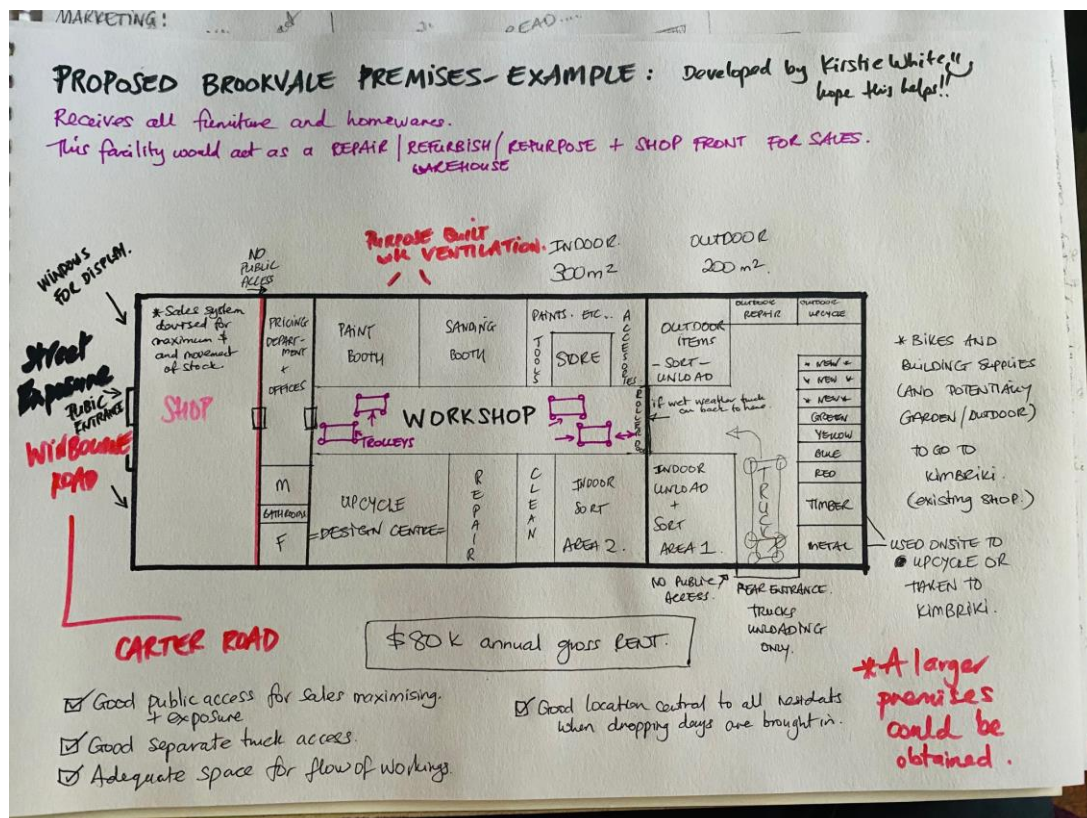 MARKETING:
PROPOSED BROOKVALE PREMISES - EXAMPLE : Developed by Kirstie White
hope this helps!!
Receives all furniture and homewares.
This facility would act as a REPAIR / REFURBISH / REPURPOSE + SHOP FRONT FOR SALES.
WAREHOUSE
PURPOSE BUILT
WITH VENTILATION.
INDOOR.
300m2
OUTDOOR
200m2.
WINDOWS
FOR DISPLAY.
NO
PUBLIC
ACCESS
Street
Exposure
PUBIC
ENTRANCE
WINBOURNE
ROAD
* Sales system
for
maximum $
and movement
of stock.
SHOP
PRICING
DEPART-
MENT
+
OFFICES
M
BATHROOM
F
PAINT
BOOTH
SANDING
BOOTH
PAINTS. ETC..
TOOLS
STORE
ACCESSORIES
WORKSHOP
TROLLEYS
ROLLERDOOR
UPCYCLE
=DESIGN CENTRE=
REPAIR
CLEAN
INDOOR
SORT
AREA 2.
OUTDOOR
ITEMS
- SORT -
UNLOAD
if wet weather truck
can back to here
INDOOR
UNLOAD
+
SORT
AREA 1.
OUTDOOR
REPAIR
OUTDOOR
UPCYCLE
TRUCK
* NEW *
* NEW *
* NEW *
GREEN
YELLOW
BLUE
RED
TIMBER
METAL
* BIKES AND
BUILDING SUPPLIES
(AND POTENTIALLY
GARDEN/OUTDOOR)
TO GO TO
KIMBRIKI
(existing SHOP.)
USED ONSITE TO
UPCYCLE OR
TAKEN TO
KIMBRIKI.
NO PUBLIC
ACCESS.
REAR ENTRANCE.
TRUCKS
UNLOADING
ONLY.
CARTER ROAD
$80K annual gross RENT.
Good public access for sales maximising.
+ exposure
Good separate truck access.
Adequate space for flow of workings.
Good location central to all residents
when dropping days are brought in.
* A larger
premises
could be
obtained.